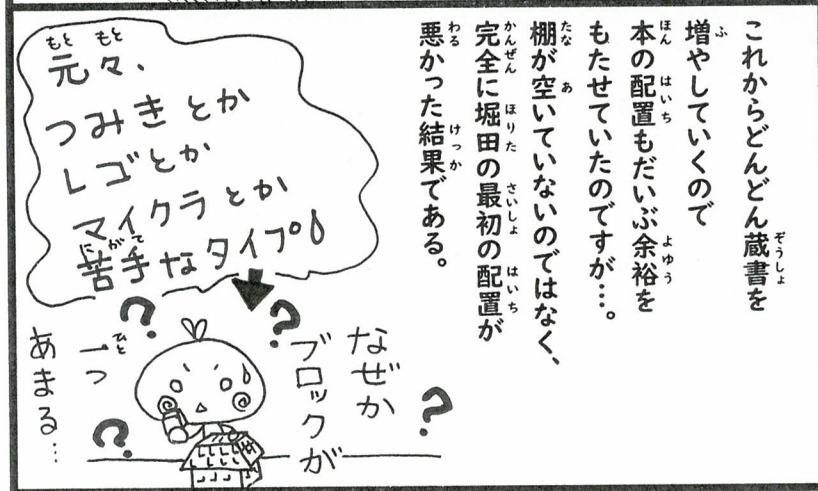 これからどんどん蔵書を
増やしていくので
本の配置もだいぶ余裕を
もたせていたのですが…。
棚が空いていないのではなく、
完全に堀田の最初の配置が
悪かった結果である。
元々、
つみきとか
レゴとか
マイクラとか
苦手なタイプ
なぜか
ブロックが
一つ
あまる…